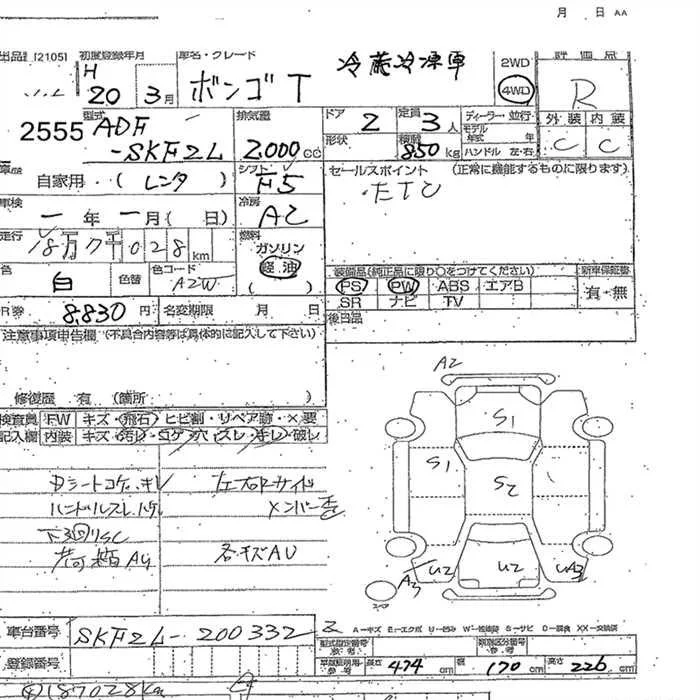 月 日 AA
出品 [2105] 初度登録年月 車名・グレード 冷蔵冷凍車 2WD 評価点
H 20 3月 ボンゴT 4WD R
型式 排気量 ドア 定員 ディーラー・並行 外装 内装
2555 ADF 2 3人 モデル年式 年 C C
-SKF22L 2,000cc 形状 積載 850kg ハンドル 左・右
自家用・( レンタ ) シフト F5 セールスポイント (正常に機能するものに限ります)
車検 一年一月( 日) 冷房 AC ・ETC
走行 18万7千028km 燃料 ガソリン
色 白 色替 色コード A2W 軽油 ( )
装備品(純正品に限り○をつけてください) 新車保証書
PS PW ABS エアB 有・無
SR ナビ TV
R券 8,830円 名変期限 月 日 後日品
注意事項申告欄 (不具合内容等は具体的に記入して下さい)
修復歴 有 (箇所 )
検査員 FW キズ・飛石・ヒビ割・リペア跡・×要
記入欄 内装 キズ・汚レ・コゲ・穴・スレ・キレ・破レ
A2
S1
S1
S2
U2 U2 UA3
A3
スペア
シートコゲ、キレ 左右サイド
ハンドルスレ、ハゲ メンバー歪
荷箱AU 各キズAU
車台番号 SKF22L-200332
A-キズ E-エクボ U-凹み W-補修跡 S-サビ C-腐食 XX-交換済
登録番号
型式指定番号 参考 類別区分番号 参考
長さ 474cm 幅 170cm 高さ 226cm
187028Km